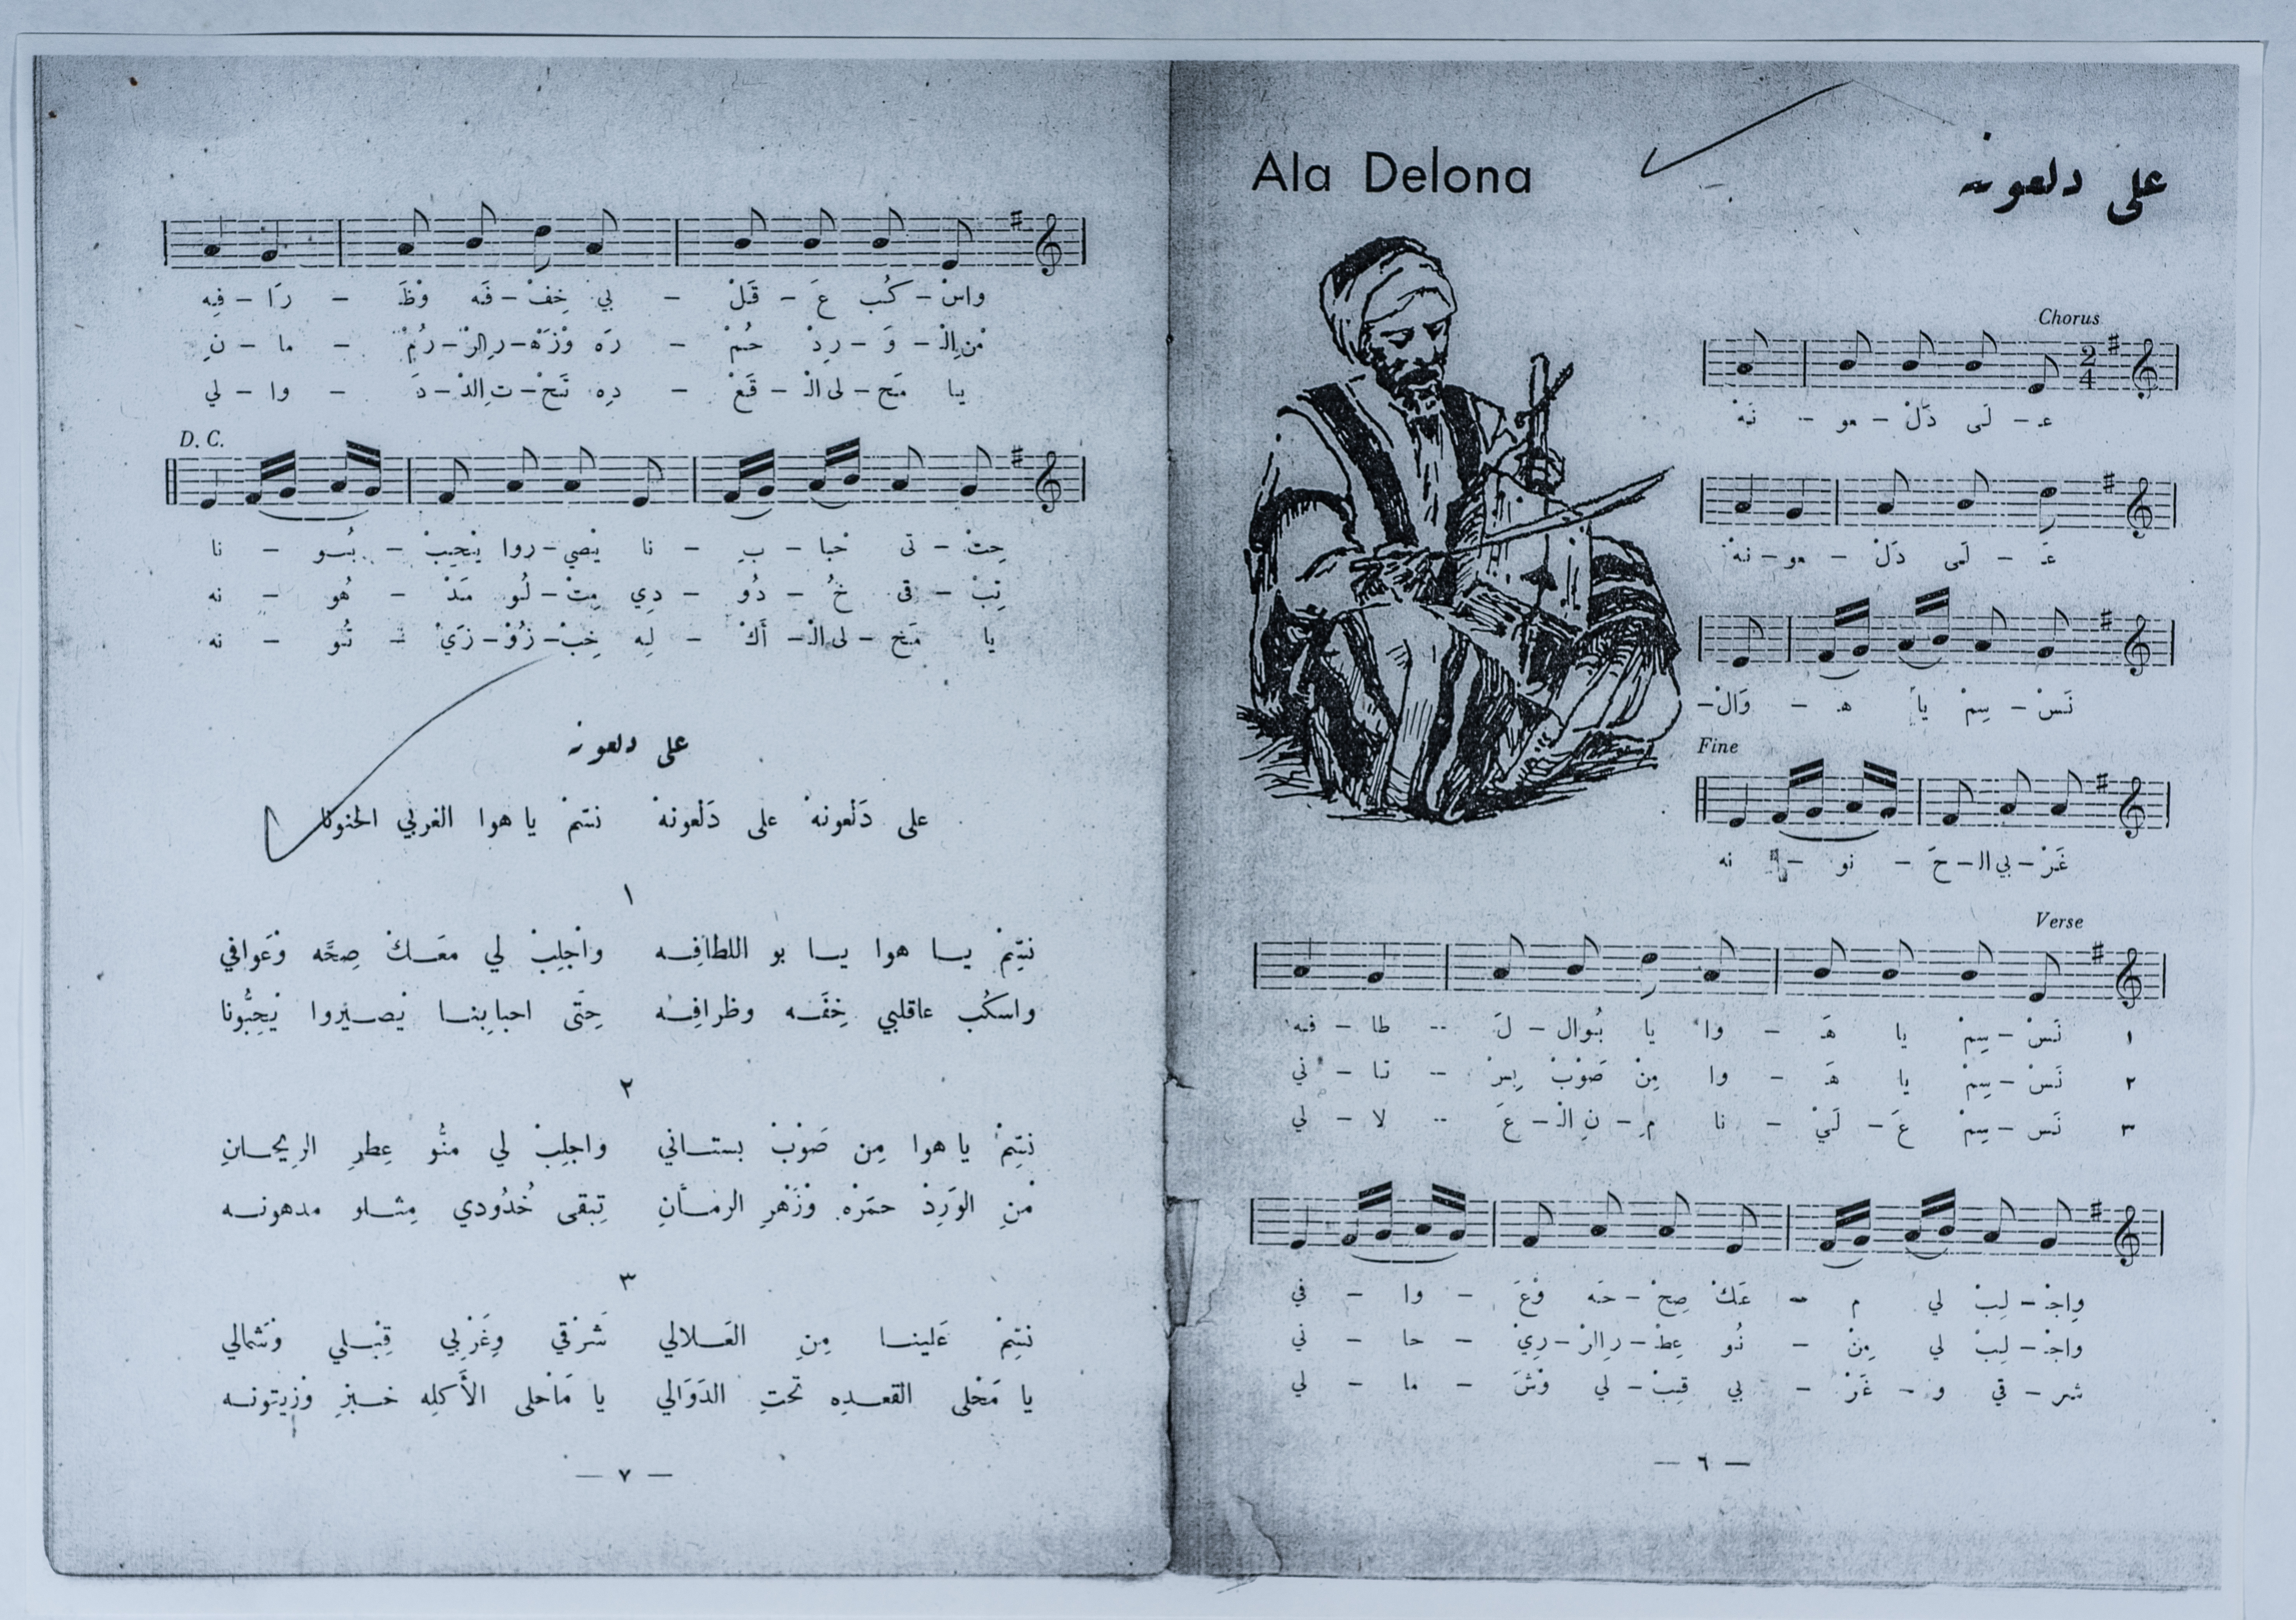 Ala Delona
على دلعونه
Chorus
2
4
عـ - لَى دَلْ - عو - نَهْ
عَـ - لَى دَلْ - عو - نهْ
نَسْ - سِمْ يا هـ - وَالْ -
Fine
غَرْ - بي الـ - حَـ - نو - نه
Verse
١ نَسْ - سِمْ يا هَـ - وا يا بُوال - لَ - طا - فـه
٢ نَسْ - سِمْ يا هَـ - وا مِنْ صَوْبْ بِسْ - تـا - ني
٣ نَس - سِمْ عَ - لَيْ - نا مِـ - نِ الـ - عَ - لا - لي
واجْـ - لِبْ لي م - عَكْ صِحْ - حَـه وْعَ - وا - في
واجْـ - لِبْ لي مِنْ - نُو عِطْـ - رِ الرْ - ريْ - حا - ني
شر - قي و - غَرْ - بي قِبْـ - لي وْشَ - ما - لي
— ٦ —
واسْـ - كُب عَ - قَـلْ - بي خِفْـ - فَـه وْظَ - رَا - فِـه
مْنِ الْـ - وَ - رِدْ حُمْ - رَه وْزَهْـ - رِ الرْ - رُمْ - ما - نِ
يـا مَحْـ - لى الْـ - قَعْـ - دِه تَحْـ - تِ الدْ - دَ - وا - لي
D. C.
حِتْ - تى حْبا - بِـ - نا يْصي - روا يْحِبْ - بُـو - نا
تِبْـ - قى خُ - دُو - دِي مِتْـ - لُو مَدْ - هُو - نه
يا مَحْـ - لى الْـ - أَكْـ - لِه خِبْـ - زُوْ - زَيْ - تُو - نه
على دلعونه
على دَلْعونهْ على دَلْعونهْ نسّمْ يا هوا الغربي الحنونا
١
نسِّمْ يـا هوا يـا بو اللطافِـه واجْلِبْ لي معَـكْ صِحَّه وْعَوافي
واسكُب عاقلبي خِفَّـه وظرافِـه حِتَّى احبابِنـا يْصـيروا يْحِبُّونا
٢
نسِّمْ يا هوا مِن صَوْبْ بستـاني واجلِبْ لي منُّو عِطرِ الرِيحـانِ
مْنِ الوَرِدْ حمَرْه وْزَهْرِ الرمـانِ تِبقى خُدُودي مِثـلو مدهونـه
٣
نسِّمْ عَلينـا مِنِ العَـلالي شَرْقي وِغَرْبي قِبْـلي وْشمالي
يا مَحْلى القعـدِه تحتِ الدَوَالي يا مَاحْلى الأَكلِه خـبزِ وْزيتونـه
— ٧ —